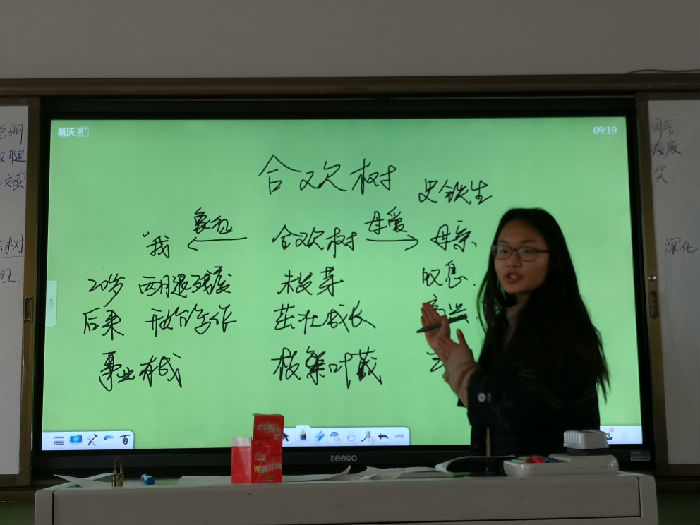 希沃
09:19
合欢树
史铁生
象征
母爱
"我
合欢树
母亲
20岁 两腿残废
未发芽
叹息
后来 开始写作
茁壮成长
高兴
事业有成
枝繁叶茂
seewo
深化